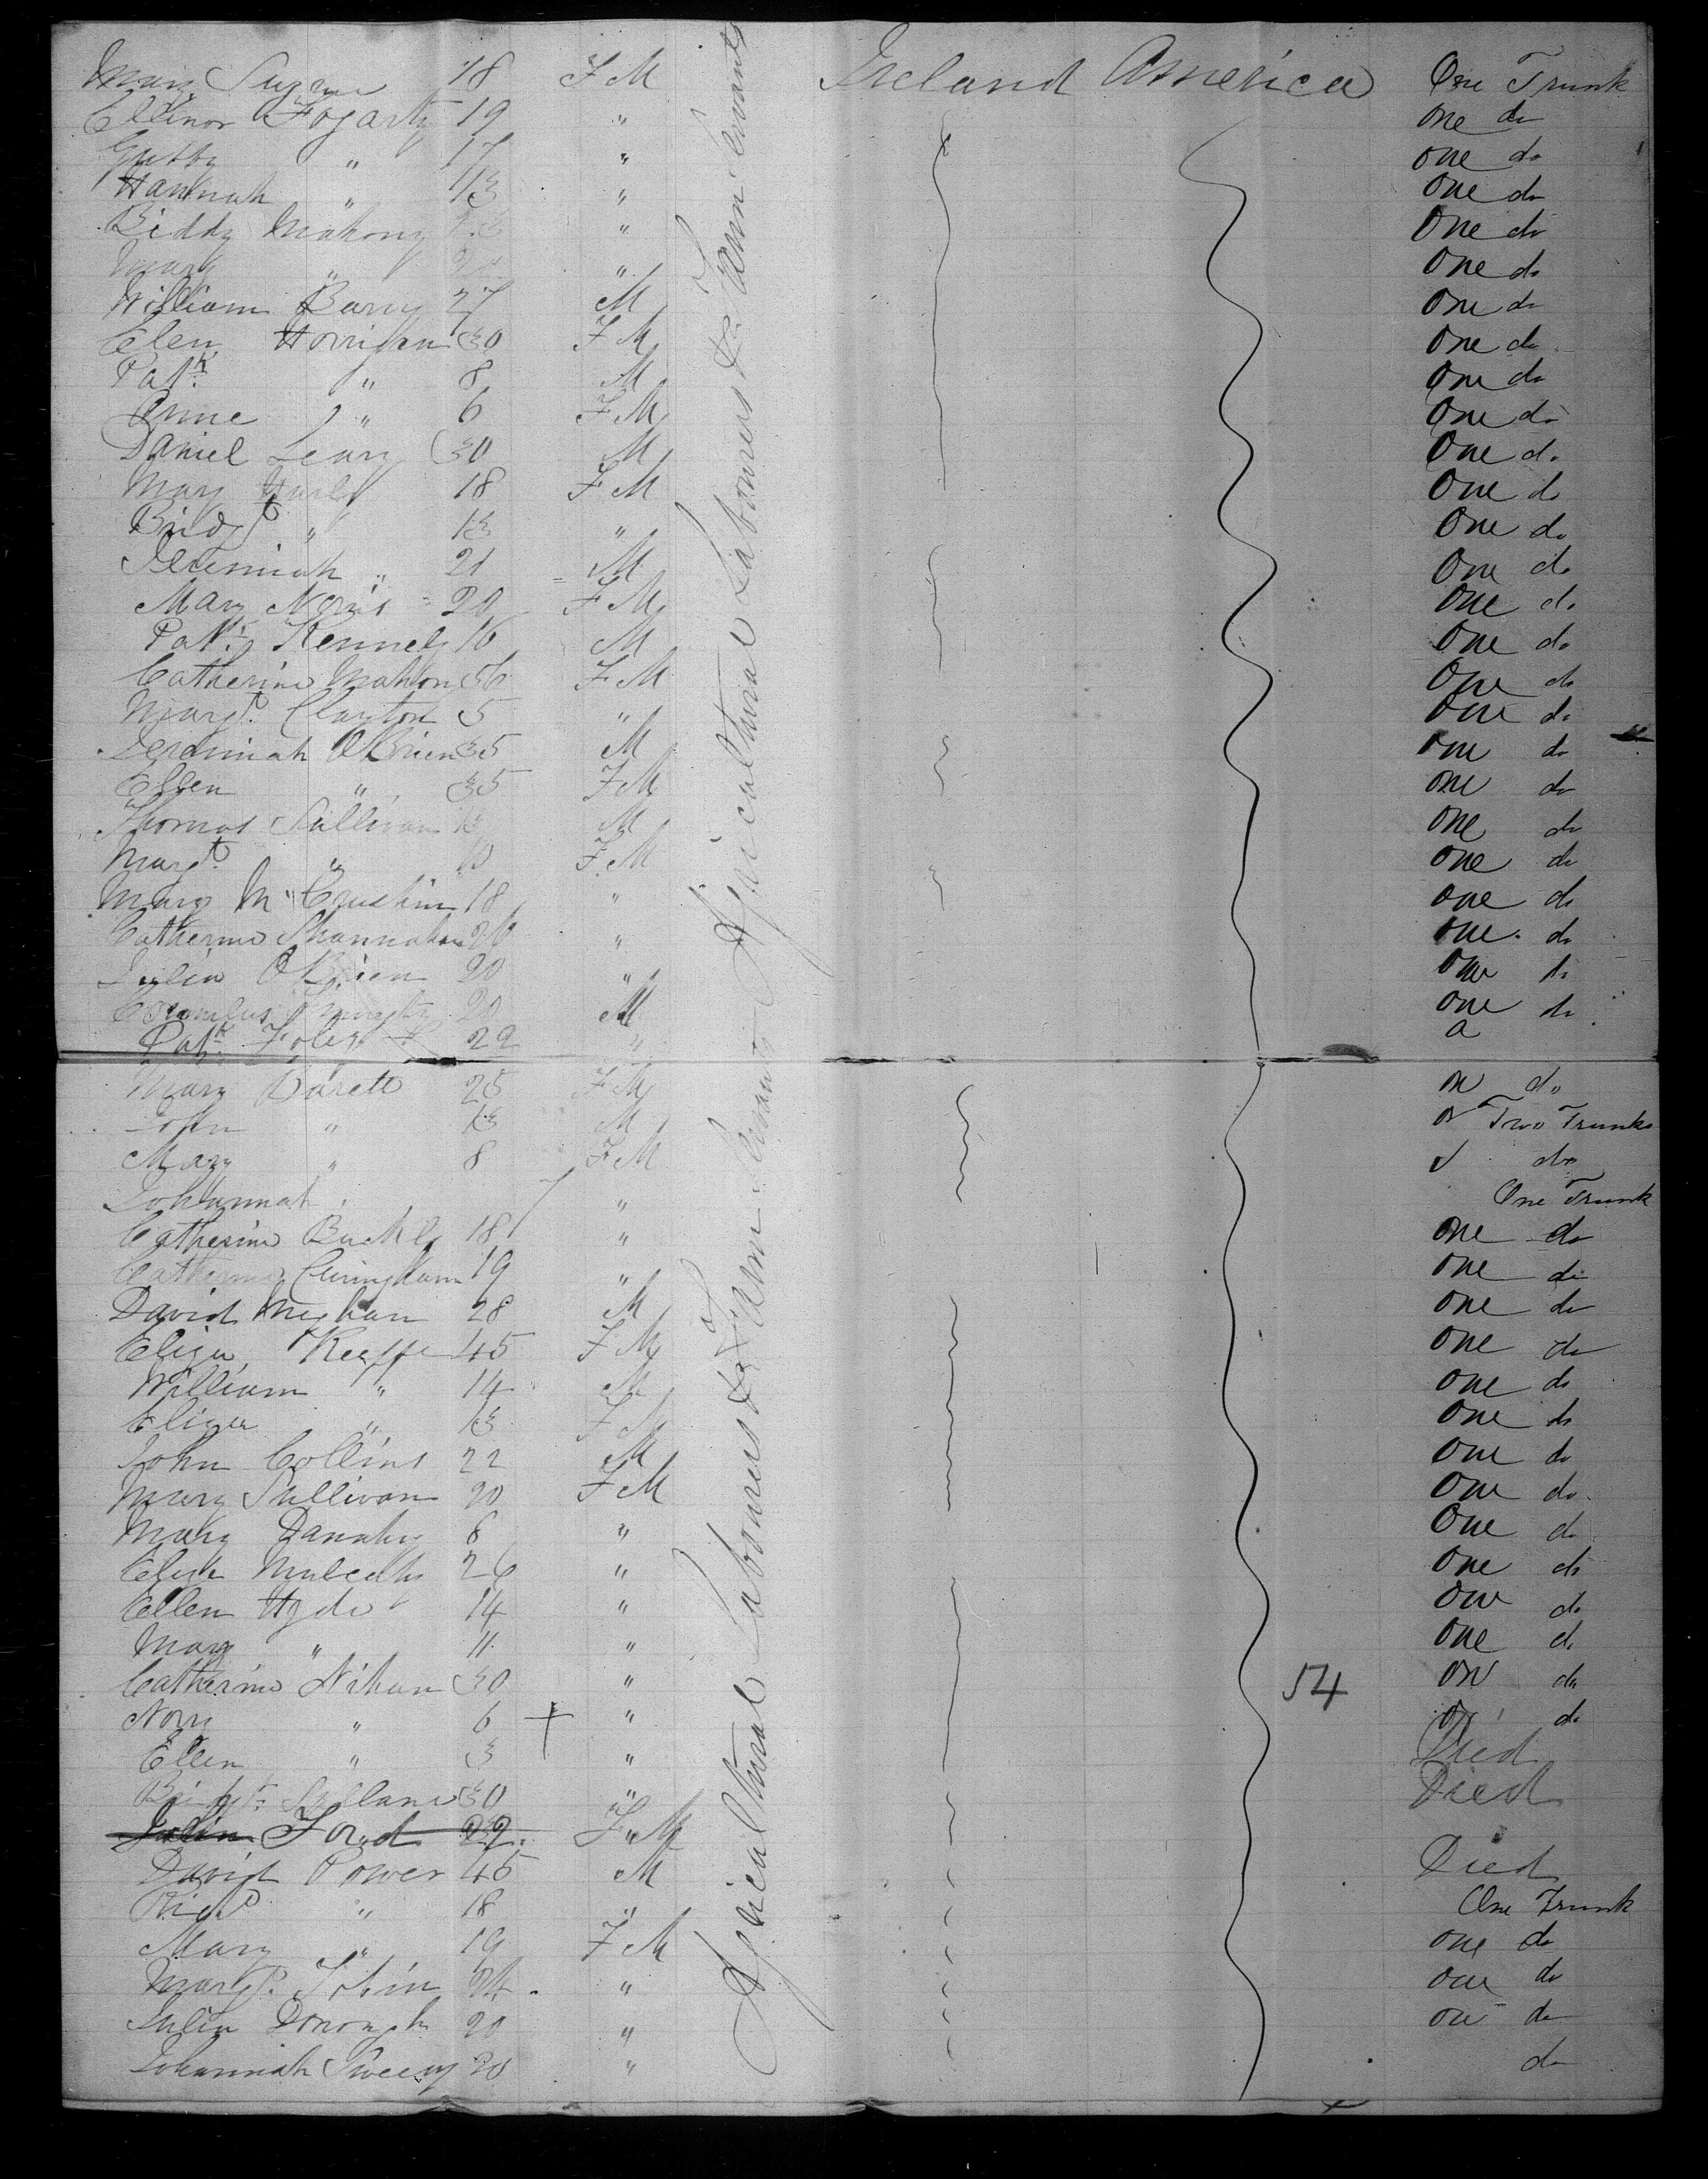 Mary 18 F M Ireland America One Trunk
Ellinor Fogarty 19 " one do
" 17 " one do
Hannah " 13 " one do
Biddy Mahony " One do
Mary " " One do
William Barry 27 M One do
Elen Horrigan 30 F M One do
Patk. " 8 M One do
Anne " 6 F M One do
Daniel Leary 30 M One do
Mary 18 F M One do
Bridgt " 13 " One do
Jeremiah " 21 M One do
Mary Neris 20 F M One do
Patk. Kennely 16 M One do
Catherine Mahony 56 F M One do
Margt. Clayton 5 " One do
Jeremiah OBrien 35 M one do
Ellen " 35 F M one do
Thomas Sullivan 13 M one do
Margt. " 10 F M one do
Mary 18 " one do
Catherine Shannahan 20 " one do
Julia OBrien 20 " one do
Cornelius 20 M one do
Patk. Foley 22 "
Mary Barett 25 F M do
John " 13 M Two Trunks
Mary " 8 F M do
Johannah 7 " One Trunk
Catherine Buckly 18 " one do
Catherine Cuningham 19 " one do
David Meghan 28 M one do
Eliza Keeffe 45 F M one do
William " 14 M one do
Eliza " 13 F M one do
John Collins 22 M one do
Mary Sullivan 20 F M One do
Mary Danahy 8 " One do
Eliza Mulcahy 26 " one do
Ellen Hyde 14 " one do
Mary " 11 " one do
Catherine Nihan 30 " 54 on do
Nory " 6 + " do
Ellen " 3 " Died
Bridgt. 30 " Died
Julia Ford 22 F M
David Power 45 M Died
Richd " 18 " One Trunk
Mary " 19 F M one do
Margt. Tobin 24 " one do
Julia Donough 20 " one do
Johannah Sweeny 20 " do
Agricultural Labourers & Farm Servants
Agricultural Labourers & Farm Servants